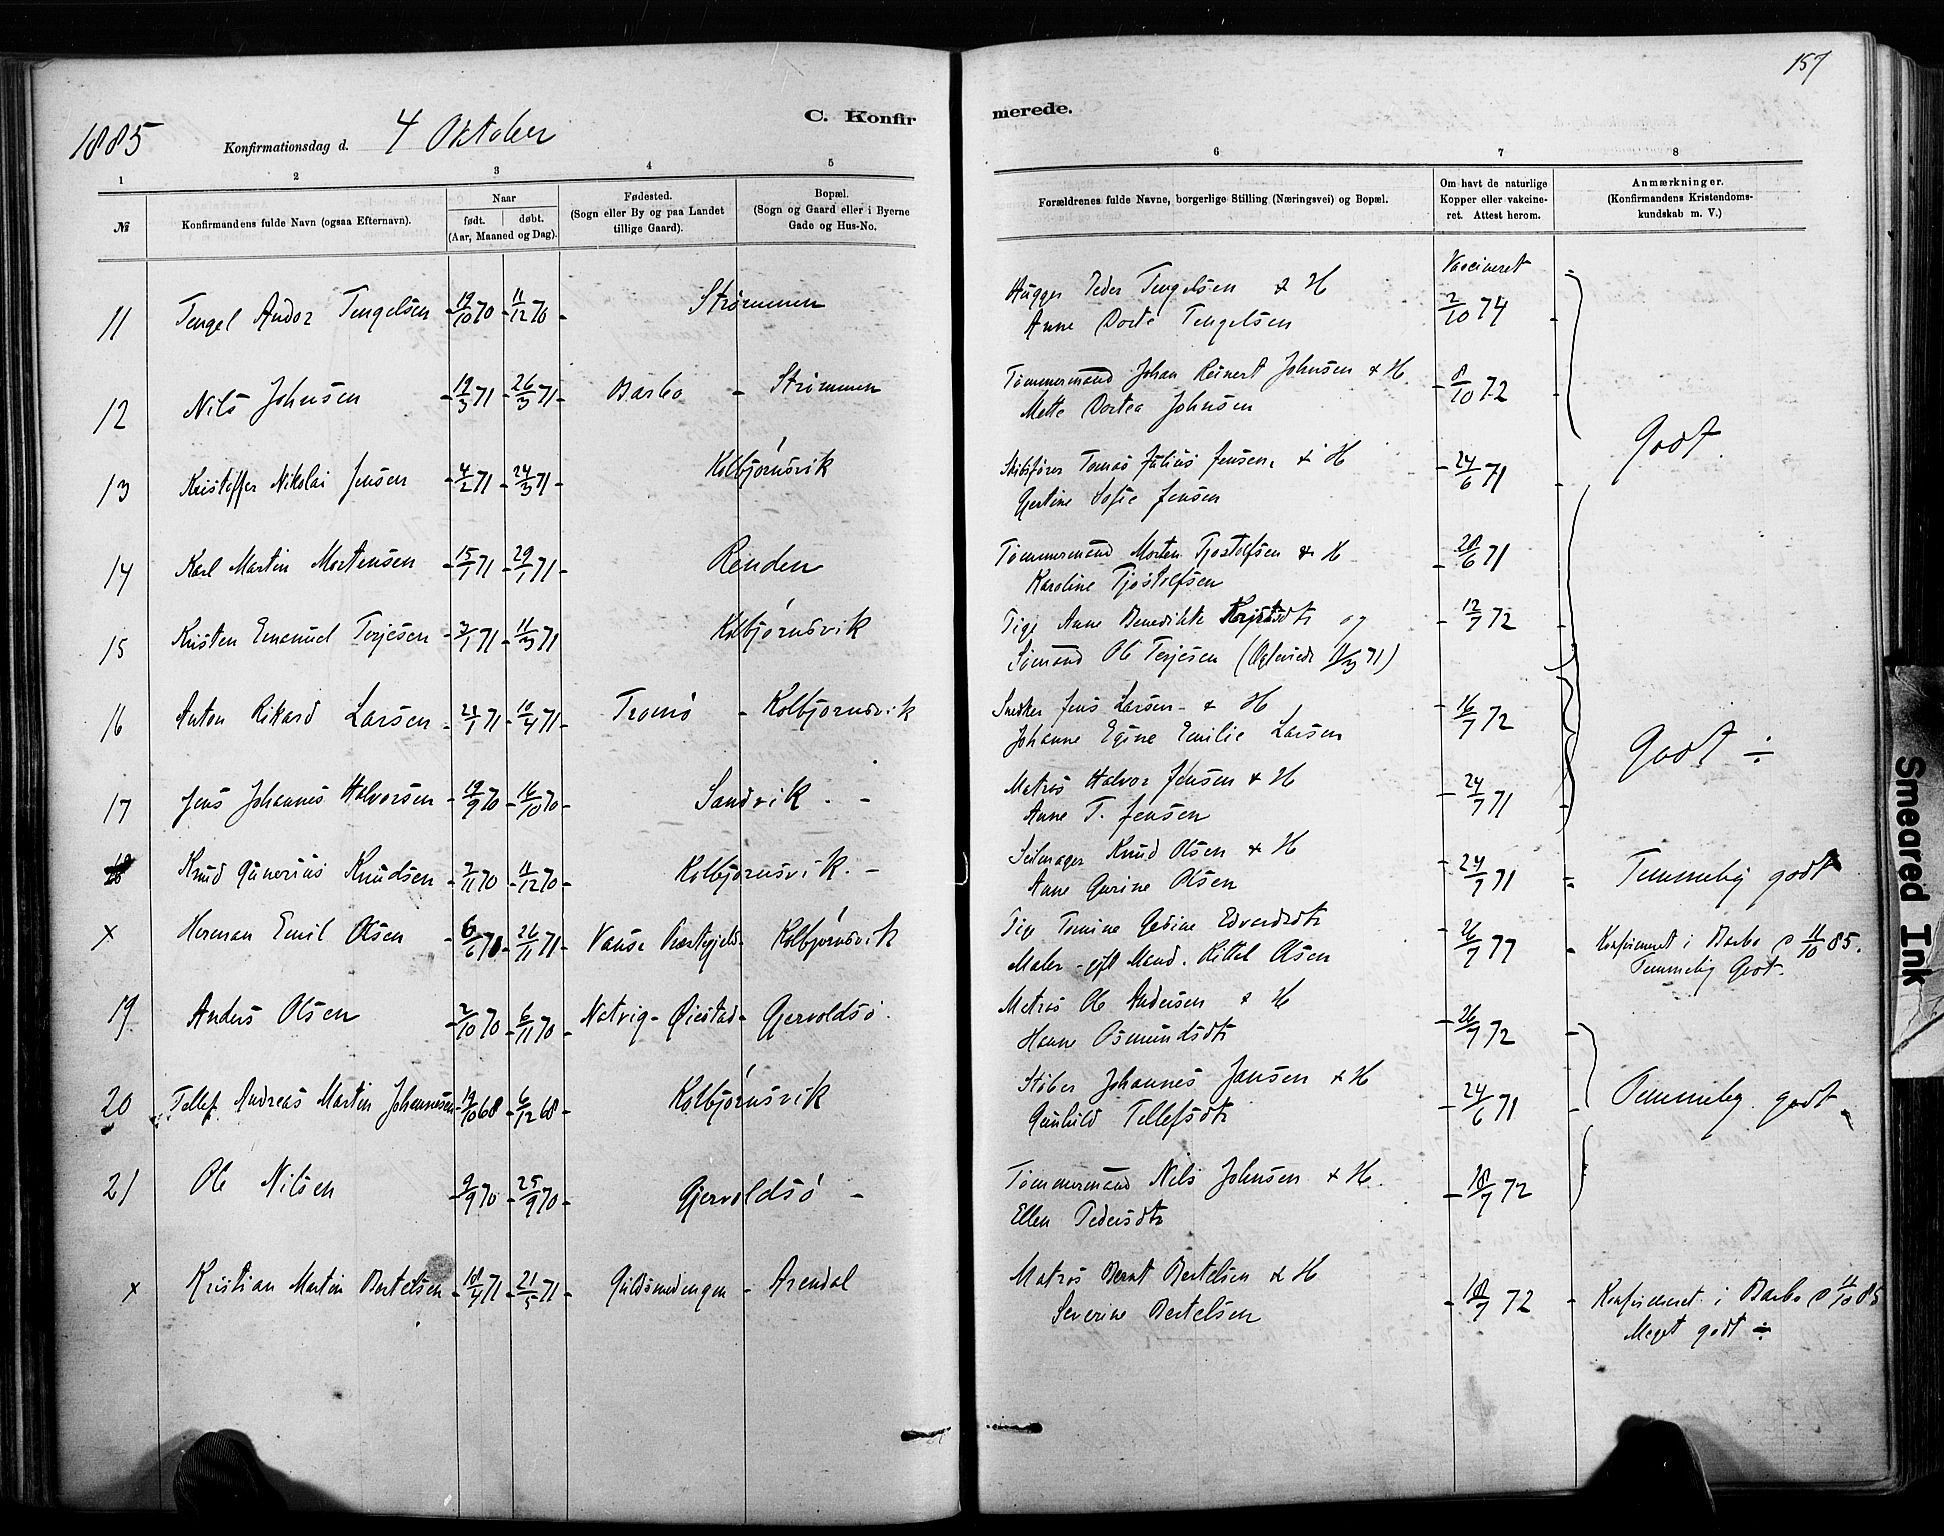 157
C. Konfirmerede.
1885 Konfirmationsdag d. 4 Oktober
1 2 3 4 5 6 7 8
№ Konfirmandens fulde Navn (ogsaa Efternavn). Naar født. døbt. (Aar, Maaned og Dag). Fødested. (Sogn eller By og paa Landet tillige Gaard). Bopæl. (Sogn og Gaard eller i Byerne Gade og Hus-No. Forældrenes fulde Navne, borgerlige Stilling (Næringsvei) og Bopæl. Om havt de naturlige Kopper eller vakcineret. Attest herom. Anmærkninger. (Konfirmandens Kristendomskundskab m. V.)
Vaccineret
11 Tengel Andor Tengelsen 19/10 70 11/12 70 Strømmen Hugger Peder Tengelsen & H
Anne Dorte Tengelsen 2/10 74
12 Nils Johnsen 19/3 71 26/3 71 Barbo - Strømmen Tømmermand Johan Reinert Johnsen & H.
Mette Dortea Johnsen 8/10 72
Godt.
13 Kristoffer Nikolai Jensen 4/2 71 24/3 71 Kolbjørnsvik Skibsfører Tomas Julius Jensen & H
Gjertine Sofie Jensen 24/6 71
14 Karl Martin Mortensen 15/1 71 29/1 71 Renden Tømmermand Morten Tjostolfsen & H
Karoline Tjostolfsen 28/6 71
15 Kristen Emanuel Terjesen 3/1 71 11/3 71 Kolbjørnsvik Pige Anne Benedikte og
Sømand Ole Terjesen 12/7 72
16 Anton Rikard Larsen 21/1 71 10/4 71 Tromø - Kolbjørnsvik Snedker Jens Larsen & H
Johanne Egine Emilie Larsen 16/7 72
Godt ÷
17 Jens Johannes Halvorsen 19/9 70 16/10 70 Sandvik - Matros Halvor Jensen & H
Anne T. Jensen 24/7 71
18 Knud Gunerius Knudsen 7/11 70 11/12 70 Kolbjørnsvik - Seilmager Knud Olsen & H
Anne Gurine Olsen 24/7 71 Temmelig godt
x Herman Emil Olsen 6/6 71 26/11 71 Vanse Præstegjeld - Kolbjørnsvik Pige Tomine Gedine Edvardsdtr
Maler - gift Mand. Kittel Olsen 26/7 77 Konfirmeret i Barbo d 11/10 85.
Temmelig Godt.
19 Anders Olsen 2/10 70 6/11 70 Natvig - Øiestad - Gjervoldsø Matros Ole Andersen & H
Hanne Osmundsdtr 26/7 72
20 Tellef Andreas Martin Johannesen 19/10 68 6/12 68 Kolbjørnsvik Støber Johannes Jansen & H
Gunhild Tellefsdtr 24/6 71 Temmelig godt
21 Ole Nilsen 9/9 70 25/9 70 Gjervoldsø - Tømmermand Nils Johnsen & H.
Ellen Pedersdtr 18/7 72
x Kristian Martin Bertelsen 18/4 71 21/5 71 Guldsmedengen - Arendal Matros Bernt Bertelsen & H
Severine Bertelsen 18/7 72 Konfirmeret i Barbo d 11/10 85
Meget godt ÷
Smeared Ink